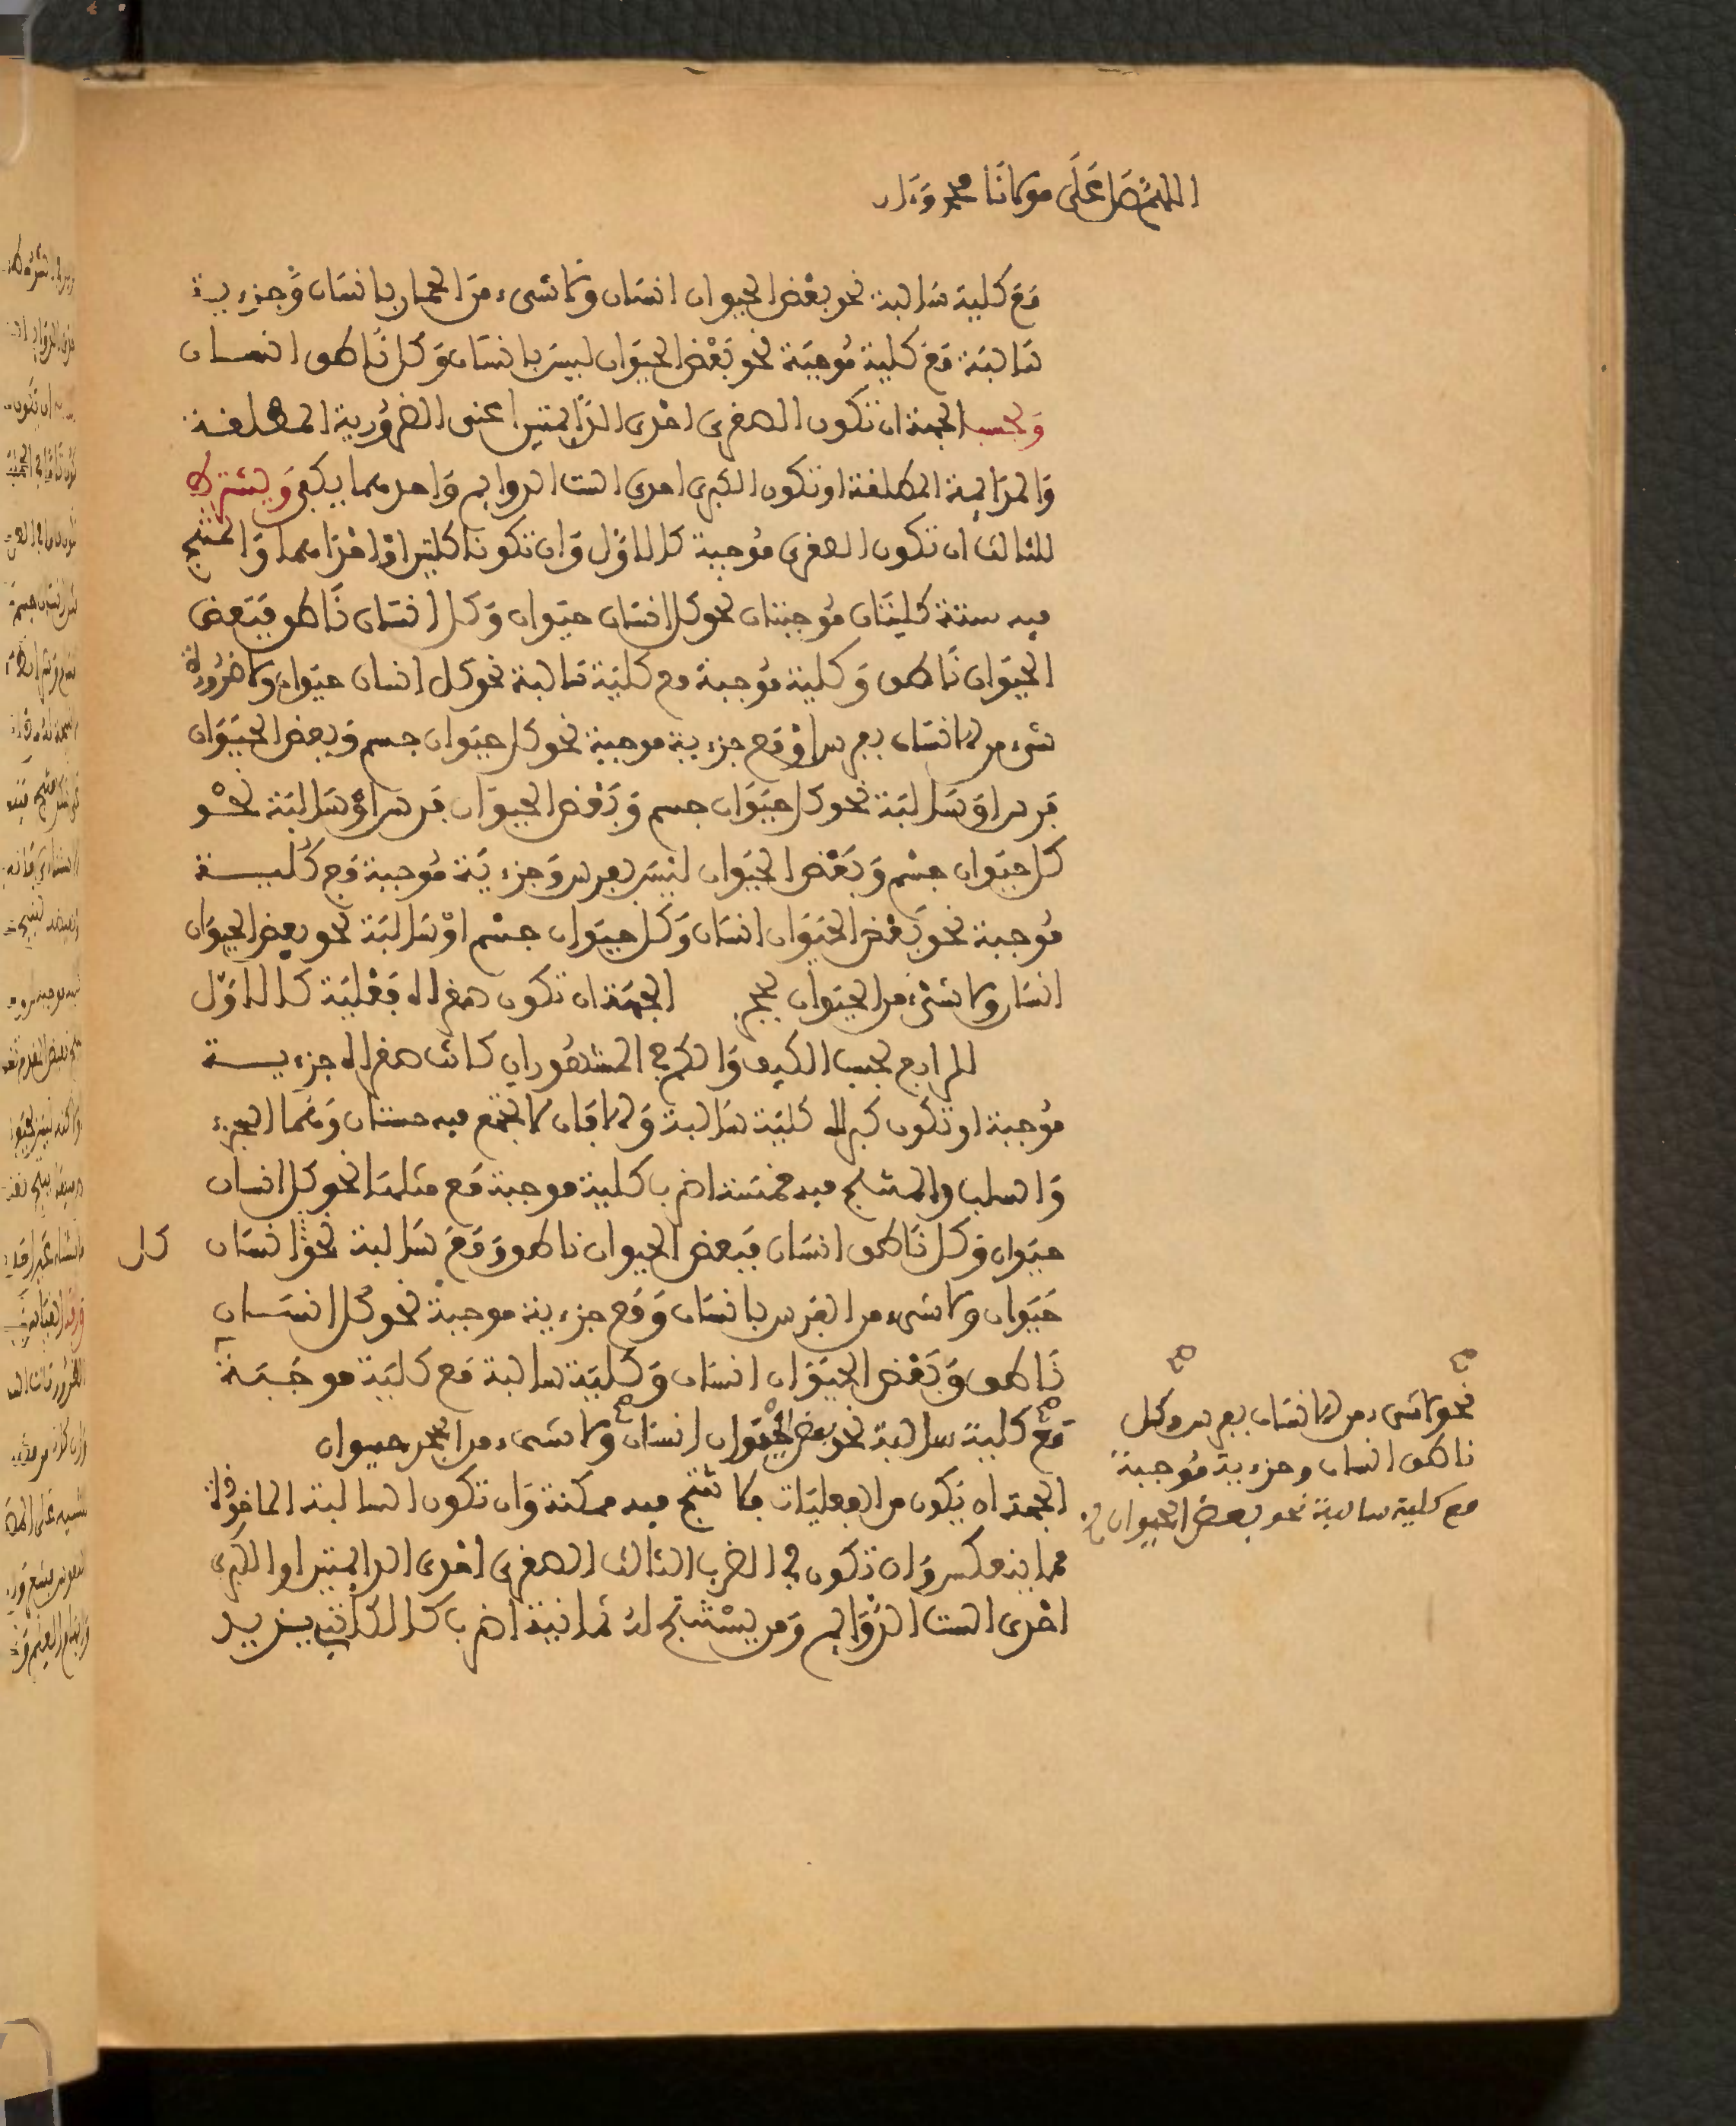 اللهم صل على مولانا محمد وءاله
مع كلية سالبة نحو بعض الحيوان انسان ولا شىء من الحمار بانسان وجزءية
سالبة مع كلية موجبة نحو بعض الحيوان ليس بانسان وكل ناطق انسان
وبحسب الجهة ان تكون الصغرى احدى الدايمتين اعنى الضرورية المطلقة
والدايمة المطلقة او تكون الكبرى احدى الست الدوايم واحدهما يكفى ويشترط
للثالث ان تكون الصغرى موجبة كالاول وان تكونا كليتين او احداهما والمنتج
فيه ستة كليتان موجبتان نحو كل انسان حيوان وكل انسان ناطق فبعض
الحيوان ناطق وكلية موجبة مع كلية سالبة نحو كل انسان حيوان ولا
شىء من الانسان بفرس او مع جزءية موجبة نحو كل حيوان جسم وبعض الحيوان
فرس او سالبة نحو كل حيوان جسم وبعض الحيوان فرس او سالبة نحو
كل حيوان جسم وبعض الحيوان ليس بفرس وجزءية موجبة مع كلية
موجبة نحو بعض الحيوان انسان وكل حيوان جسم او سالبة نحو بعض الحيوان
انسان ولا شىء من الحيوان بحجر الجهة ان تكون صغراه فعلية كالاول
الرابع بحسب الكيف والكم المشهور ان كانت صغراه جزءية
موجبة او تكون كبراه كلية سالبة والا فان لا تجتمع فيه خستان وهما الجزء
والسلب والمنتج فيه خمسة اضرب كلية موجبة مع مثلها نحو كل انسان
حيوان وكل ناطق انسان فبعض الحيوان ناطق ومع سالبة نحو انسان كل
حيوان ولا شىء من الفرس بانسان ومع جزءية موجبة نحو كل انسان
ناطق وبعض الحيوان انسان وكلية سالبة مع كلية موجبة
نحو لا شىء من الانسان بفرس وكل
ناطق انسان وجزءية موجبة
مع كلية سالبة نحو بعض الحيوان
مع كلية سالبة نحو بعض الحيوان انسان ولا شىء من الحجر حيوان
الجهة ان يكون من الفعليات فلا تنتج فيه ممكنة وان تكون السالبة الماخوذة
مما ينعكس وان تكون فى الضرب الثالث الصغرى احدى الدايمتين او الكبرى
احدى الست الدوايم ومن يستنتج له ثمانية اضرب كالكاتبى يزيد